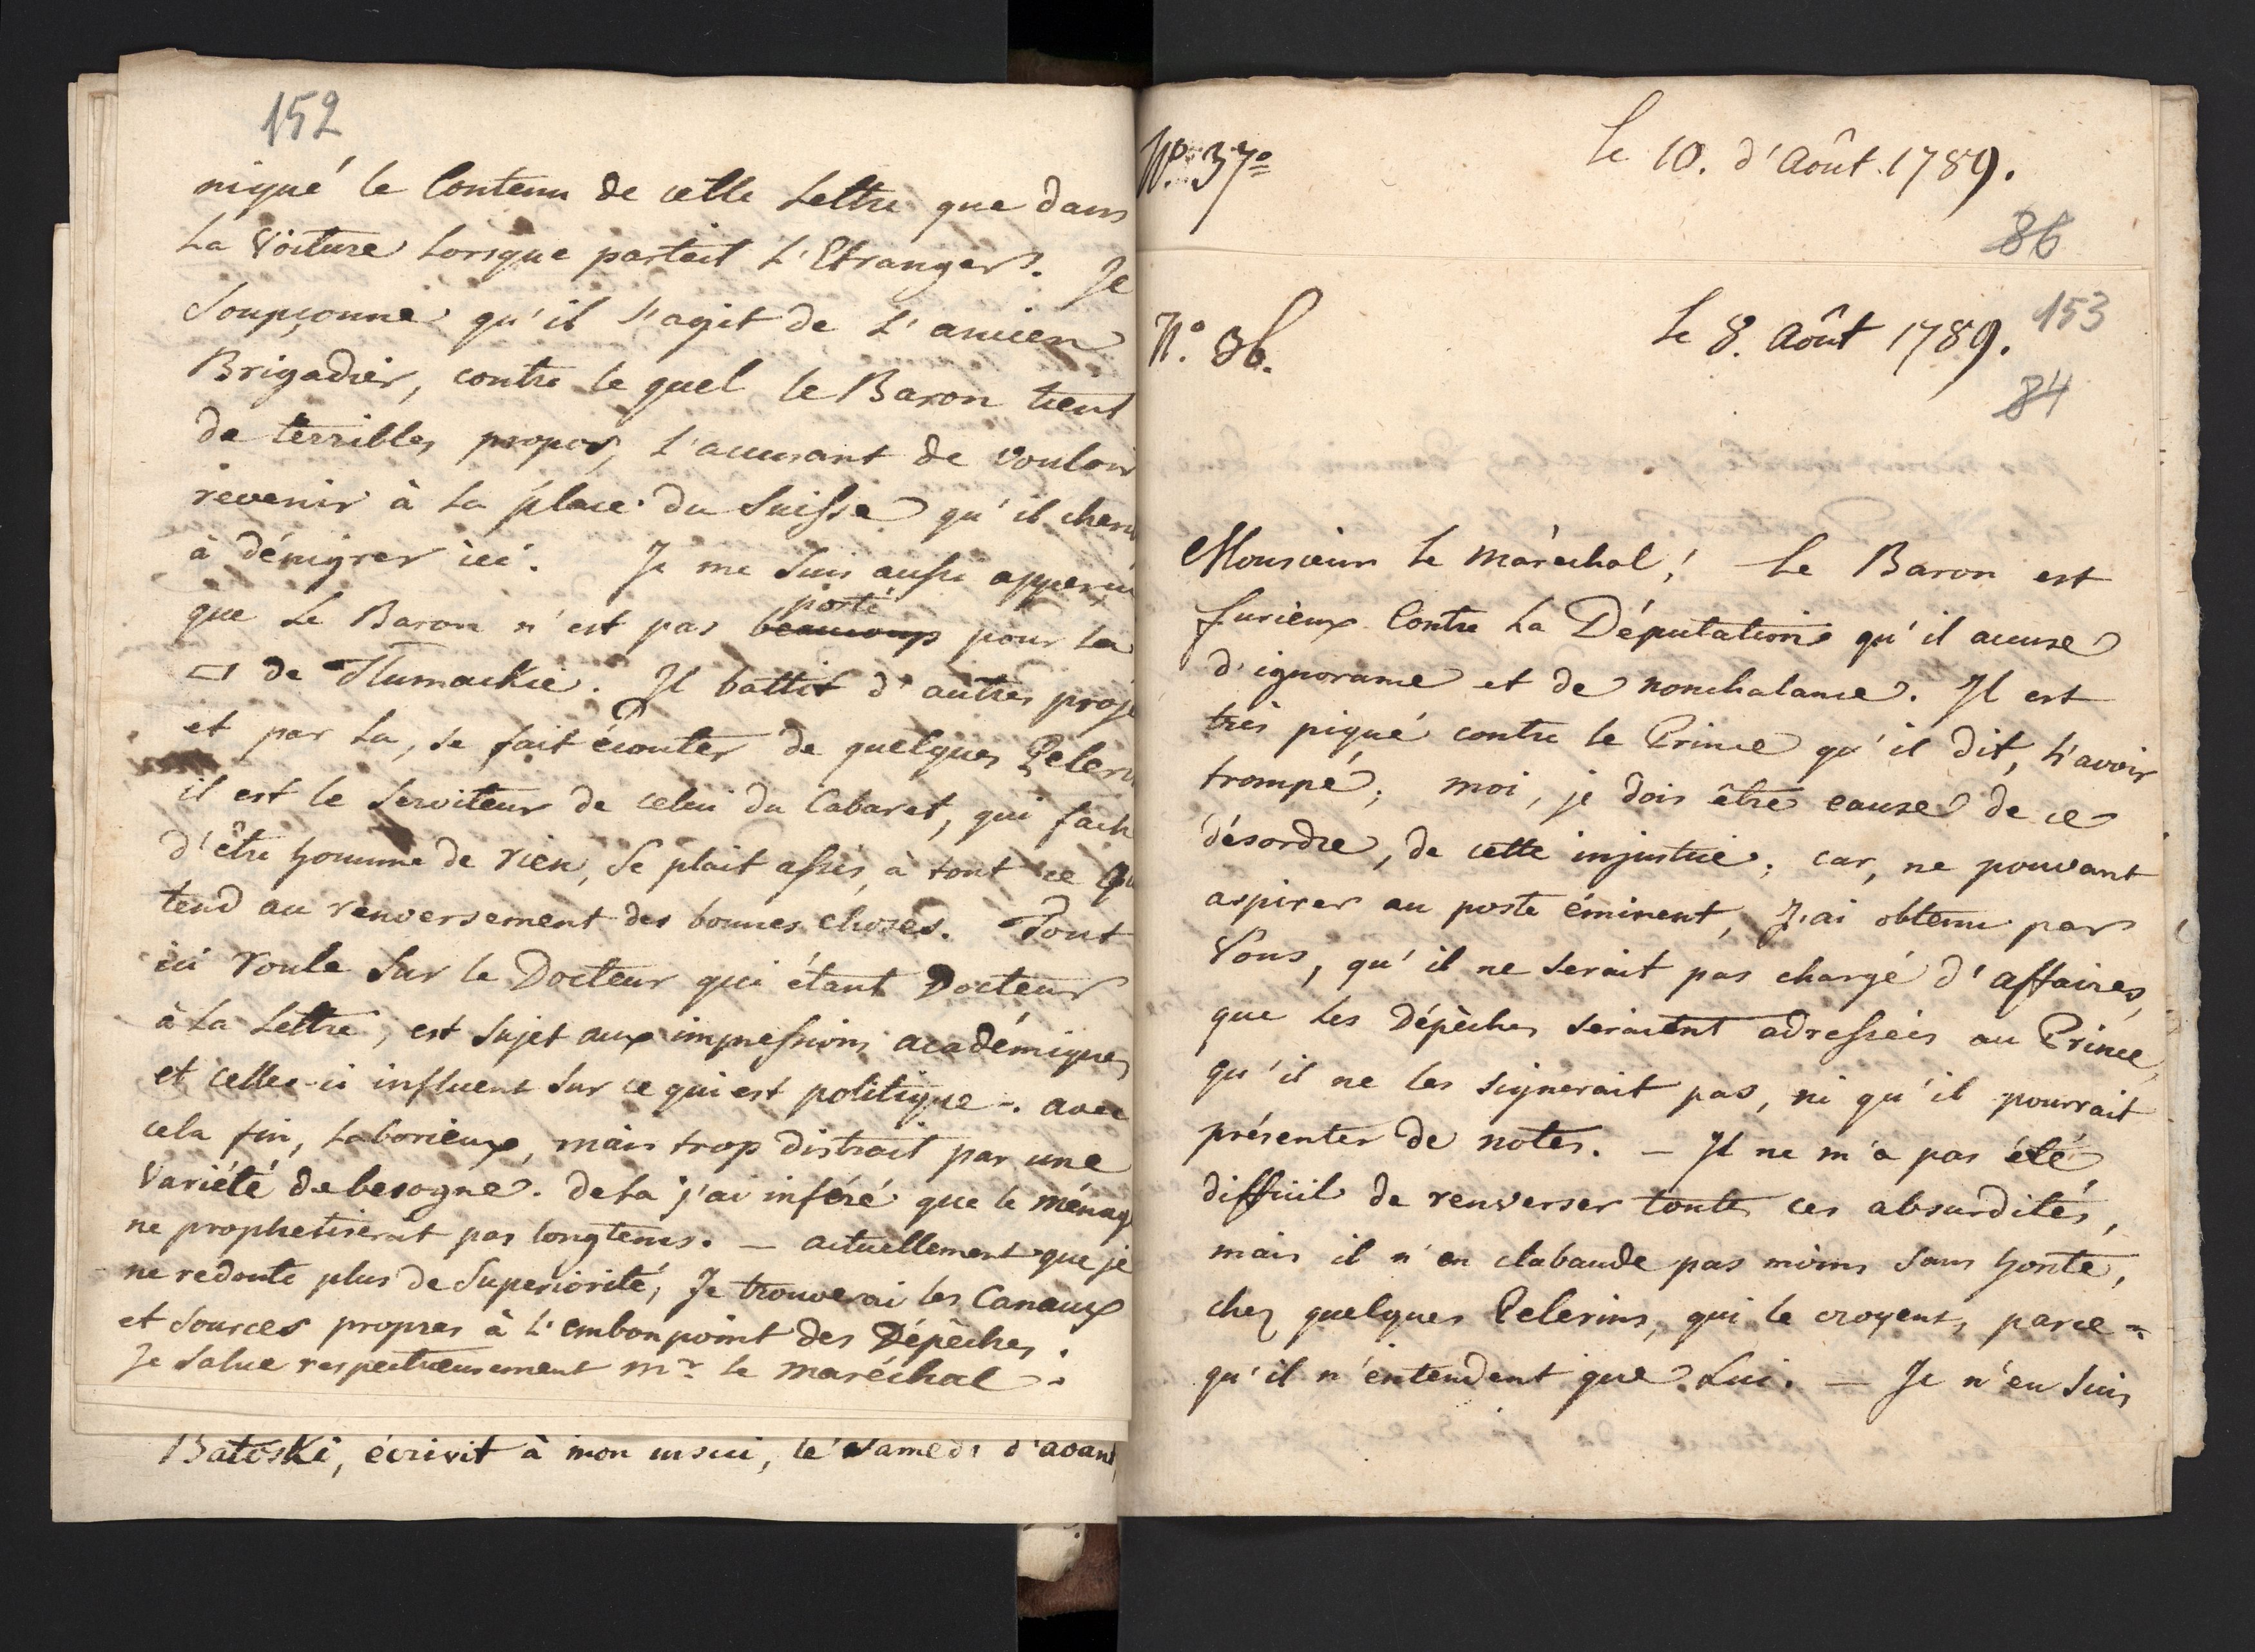 152
niqué le Contenu de cette Lettre que dans
La Voiture Lorsque partait L'Etranger. Je
Soupçonne qu'il s'agit de L'ancien
Brigadier, contre le quel le Baron tient
de terribles propos, L'accusant de vouloir
revenir à La place du Suisse qu'il cher
à dénigrer ici. Je me suis aussi apperçu
porté
que Le Baron n'est pas beaucoup pour La
▭ de Tlumackie. Il battit d'autres proje
et par La, se fait écouter de quelques Peleri
il est le Serviteur de celui du Cabaret, qui fach
d'être homme de rien, Se plait assés, à tout ce qu
tend au renversement des bonnes choses. Tout
ici roule Sur le Docteur qui étant Docteur
à La Lettre, est Sujet aux impressions académiques
et celles-ci influent Sur ce qui est politique. avec
cela fin, Laborieux, mais trop distrait par une
Variété de besogne. de La j'ai inféré que le ménag
ne prophetiserait pas longtems. — actuellement que je
ne redoute plus de Superiorité, Je trouverai les Canaux
et Sources propres à L'embonpoint des Dépèches.
Je Salue respectueusement mr. le maréchal.
Batoski, écrivit à mon insçu, le samedi d'avant
No. 37o
Le 10. d'Août 1789.
86
No. 36.
Le 8. Août 1789.
153
84
Monsieur Le Maréchal! Le Baron est
furieux Contre La Députation qu'il accuse
d'ignorance et de nonchalance. Il est
très piqué contre le Prince qu'il dit, L'avoir
trompé; moi, je dois être cause de ce
désordre, de cette injustice; car, ne pouvant
aspirer au poste éminent, J'ai obtenu par
Vous, qu'il ne serait pas chargé d'affaires,
que Les Dépèches seraient adressées au Prince,
qu'il ne les signerait pas, ni qu'il pourrait
présenter de notes. — Il ne m'a pas été
difficil de renverser toute ces absurdités,
mais il n'en clabaude pas moins sans honte,
chez quelques Pelerins, qui le croyent, parce =
qu'il n'entendent que Lui. — Je n'en suis